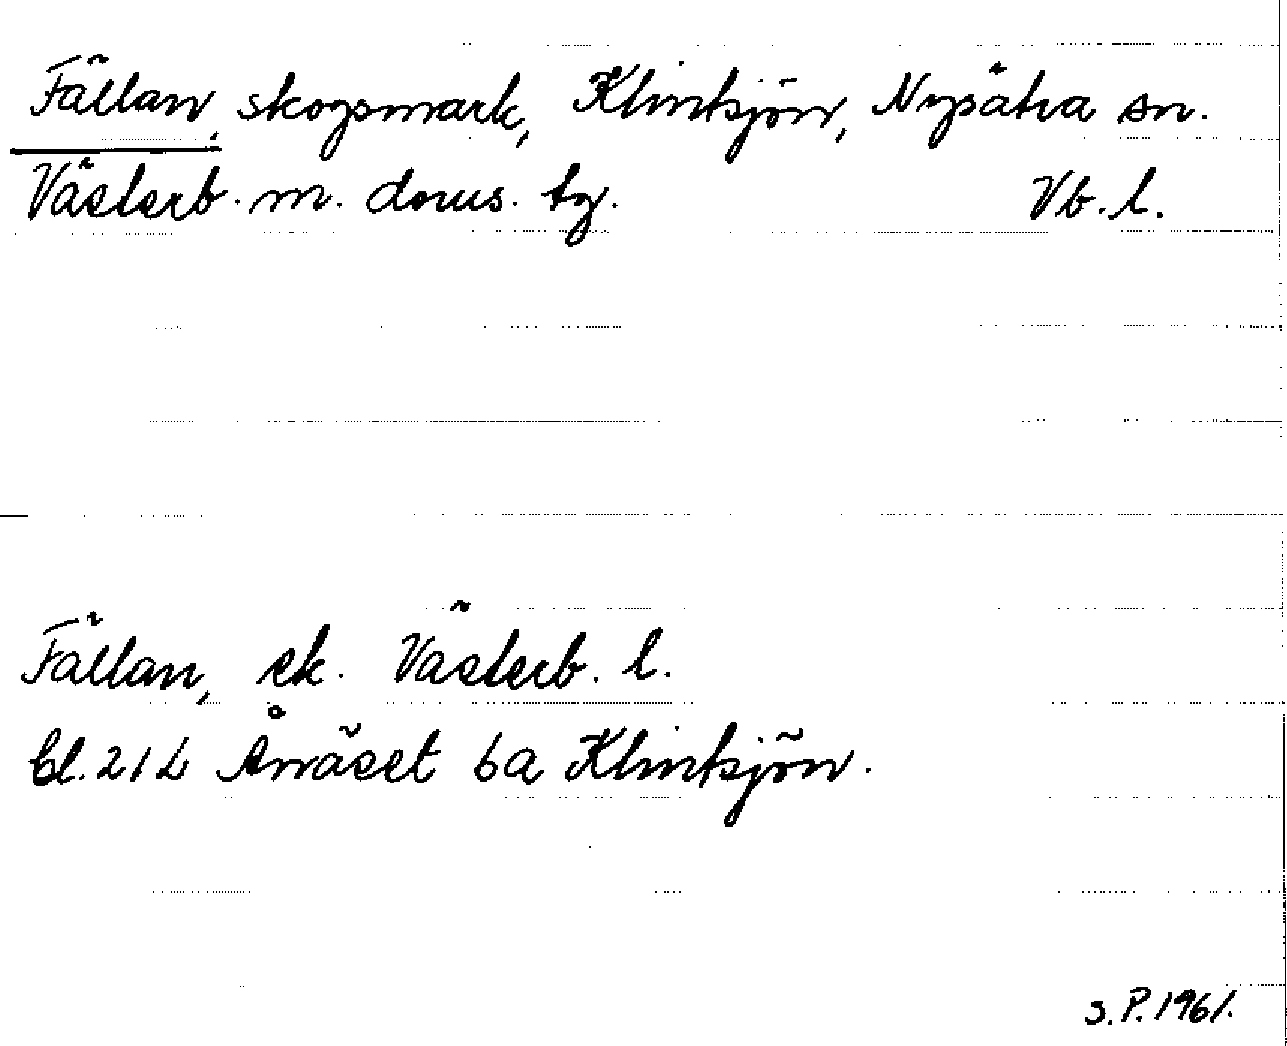 Fällan, skogsmark, Klintsjön, Nysätra sn.
Västerb. m. doms. tg. Vb. l.
Fällan, sk. Västerb. l.
bl. 21L Ånäset 6a Klintsjön.
S. P. 1961.